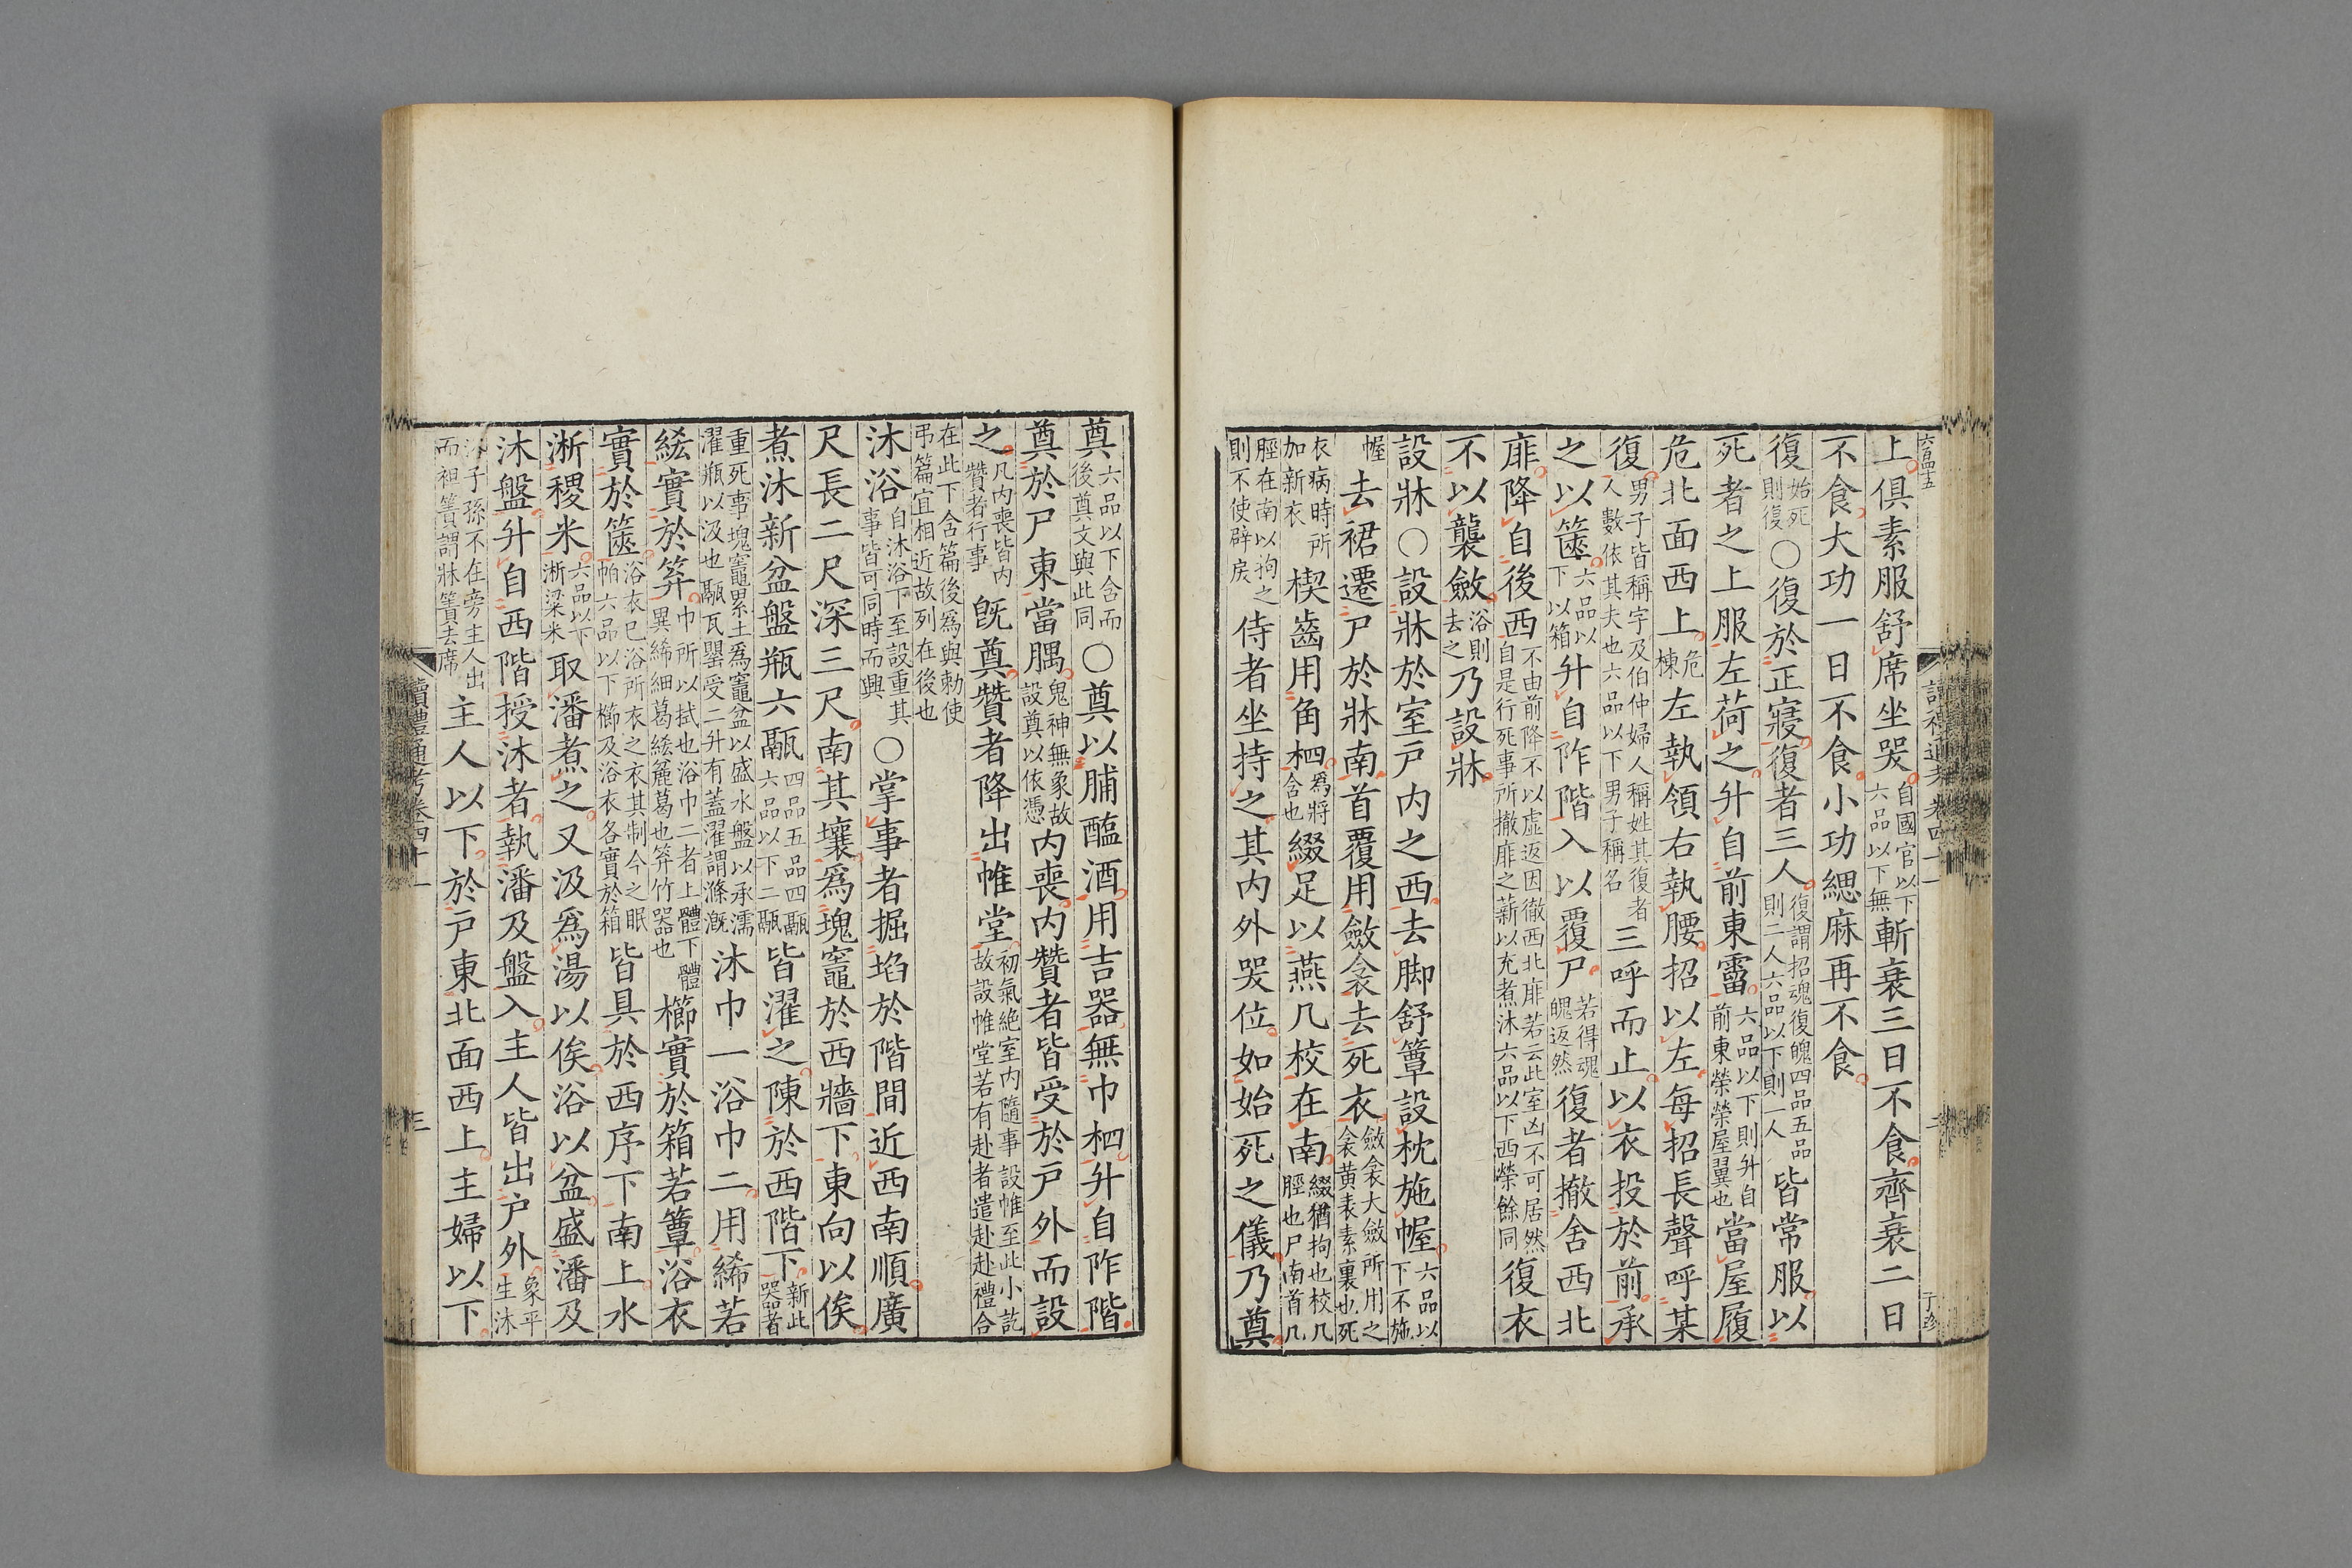 上俱素服舒席坐哭自國官以下六品以下無斬衰三日不食齊衰二日
不食大功一日不食小功緦麻再不食
復始死則復○復於正寢復者三人復謂招魂復魄四品五品則二人六品以下則一人皆常服以
死者之上服左荷之升自前東霤六品以下則升自前東榮榮屋翼也當屋履
危北面西上危棟左執領右執腰招以左每招長聲呼某
復男子皆稱字及伯仲婦人稱姓其復者人數依其夫也六品以下男子稱名三呼而止以衣投於前承
之以篋六品以下以箱升自阼階入以覆尸若得魂魄返然復者撤舍西北
厞降自後西不由前降不以虛返因徹西北厞若云此室凶不可居然自是行死事所撤厞之薪以充煮沐六品以下西榮餘同復衣
不以襲斂浴則去之乃設牀
設牀○設牀於室戶內之西去脚舒簟設枕施幄六品以下不施
幄去裙遷尸於牀南首覆用斂衾去死衣斂衾大斂所用之衾黃表素裏也死
衣病時所加新衣楔齒用角柶爲將含也綴足以燕几校在南綴猶拘也校几脛也尸南首几
脛在南以拘之則不使辟戾侍者坐持之其內外哭位如始死之儀乃奠
讀禮通考卷四十一 二
奠六品以下含而後奠文與此同○奠以脯醢酒用吉器無巾柶升自阼階
奠於尸東當腢鬼神無象故設奠以依憑內喪內贊者皆受於戶外而設
之凡內喪皆內贊者行事旣奠贊者降出帷堂初氣絶室內隨事設帷至此小訖故設帷堂若有赴者遣赴赴禮合
在此下含篇後爲與勅使弔篇宜相近故列在後也
沐浴自沐浴下至設重其事皆可同時而興○掌事者掘坎於階間近西南順廣
尺長二尺深三尺南其壤爲塊竈於西牆下東向以俟
煮沐新盆盤瓶六鬲四品五品四鬲六品以下二鬲皆濯之陳於西階下新此器者
重死事塊竈累土爲竈盆以盛水盤以承濡濯瓶以汲也鬲瓦甖受二升有蓋濯謂滌漑沐巾一浴巾二用絺若
綌實於笲巾所以拭也浴巾二者上體下體異絺細葛綌麄葛也笲竹器也櫛實於箱若簟浴衣
實於篋浴衣已浴所衣之衣其制今之眠帕六品以下櫛及浴衣各實於箱皆具於西序下南上水
淅稷米六品以下淅梁米取潘煮之又汲爲湯以俟浴以盆盛潘及
沐盤升自西階授沐者執潘及盤入主人皆出戶外象平生沐
浴子孫不在旁主人出而袒簀謂牀簀去席主人以下於戶東北面西上主婦以下
讀禮通考卷四十一 三